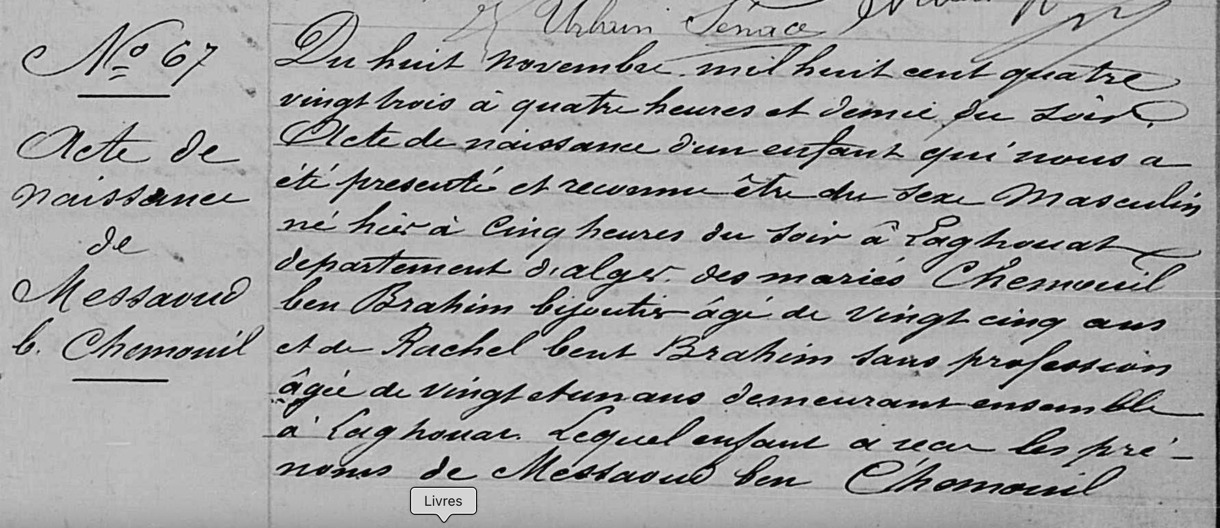 Urbain Sénac
No 67
Acte de
naissance
de
Messaoud
b. Chemouil
Du huit novembre mil huit cent quatre
vingt trois à quatre heures et demie du soir.
Acte de naissance d'un enfant qui nous a
été presenté et reconnu être du sexe Masculin
né hier à Cinq heures du soir à Laghouat
departement d'alger. des mariés Chemouil
ben Brahim bijoutier âgé de vingt cinq ans
et de Rachel bent Brahim sans profession
âgée de vingt et un ans demeurant ensemble
à Laghouat. Lequel enfant a recu les pré-
noms de Messaoud ben Chemouil
Livres